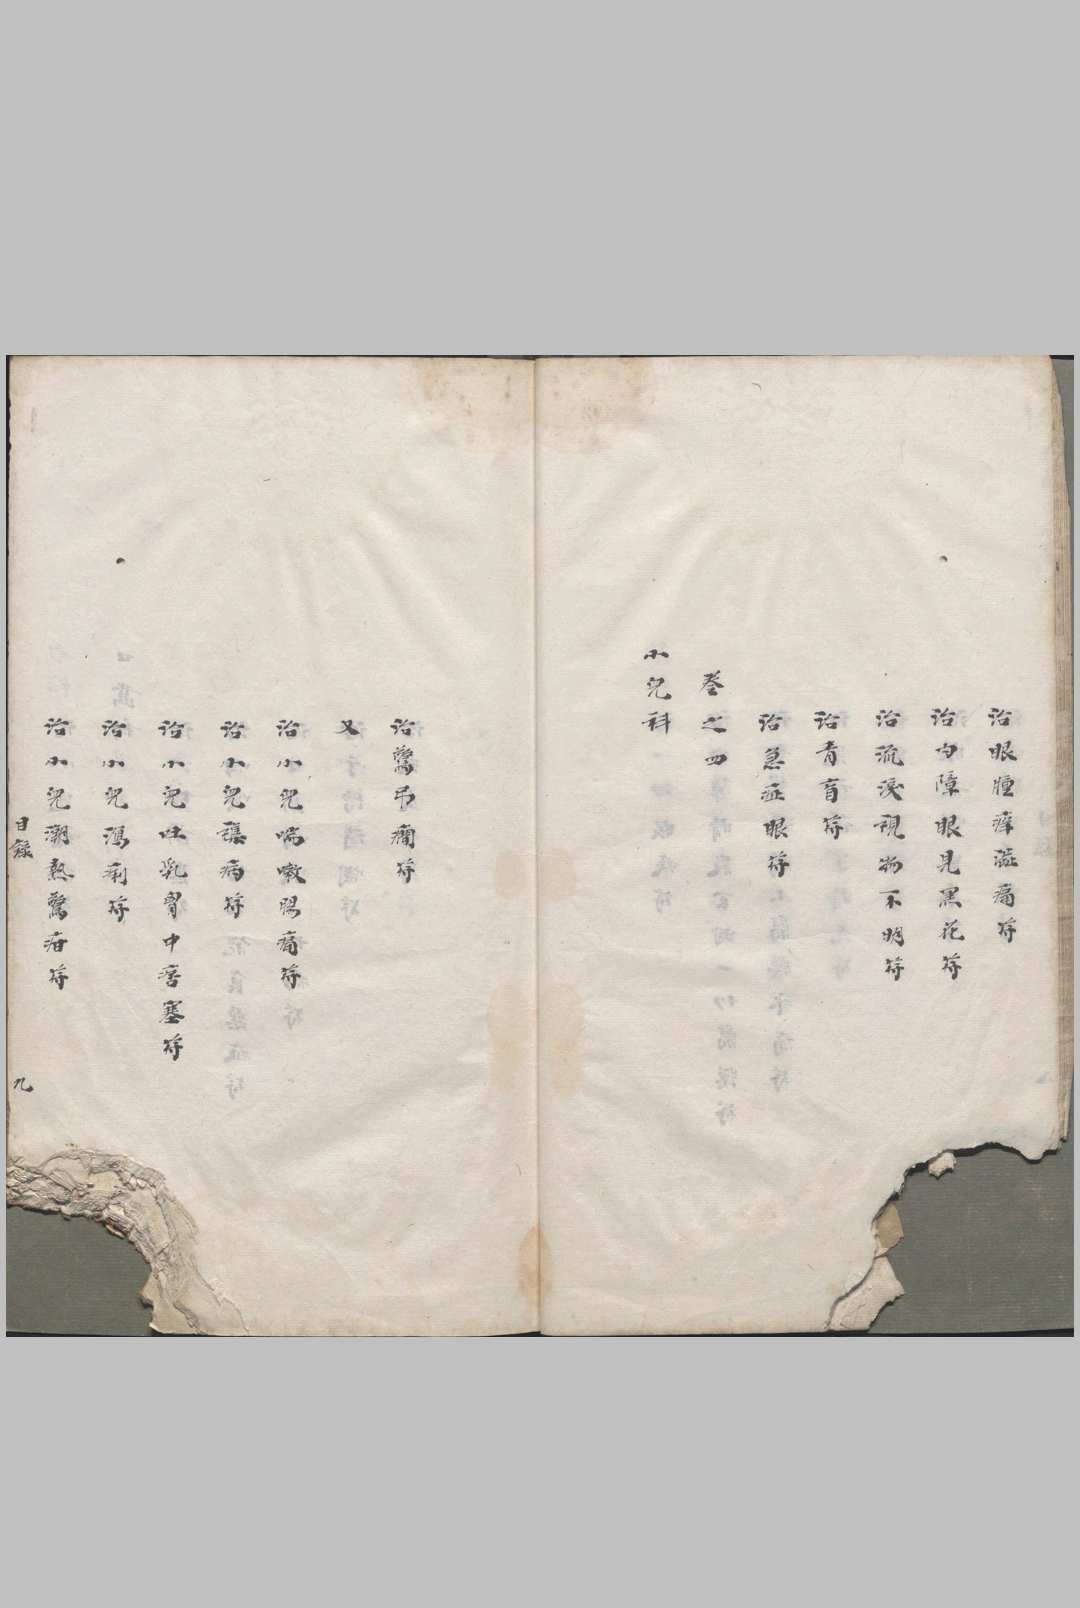 治眼腫痒澁痛符
治內障眼見黑花符
治流淚視物不明符
治青盲符
治急症眼符
卷之四
小兒科
治驚吊癇符
又
治小兒喘嗽腸痛符
治小兒諸病符
治小兒吐乳胃中痞塞符
治小兒瀉痢符
治小兒潮熱驚疳符
目錄
九